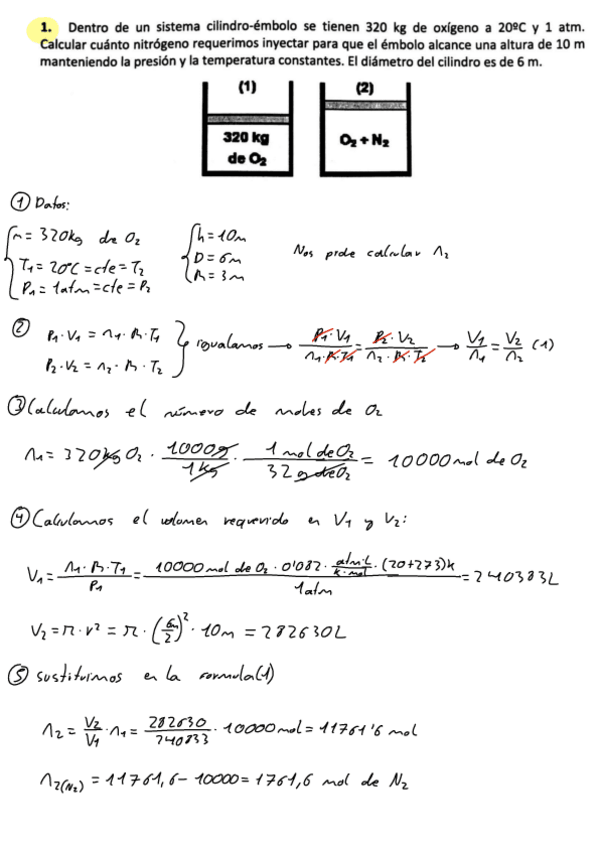 1. Dentro de un sistema cilindro-émbolo se tienen 320 kg de oxígeno a 20ºC y 1 atm.
Calcular cuánto nitrógeno requerimos inyectar para que el émbolo alcance una altura de 10 m
manteniendo la presión y la temperatura constantes. El diámetro del cilindro es de 6 m.
(1) (2)
320 kg
de O₂
O₂ + N₂
① Datos:
m = 320kg de O₂
T₁ = 20°C = cte = T₂
P₁ = 1atm = cte = P₂
h = 10m
D = 6m
R = 3m
Nos pide calcular n₂
② P₁·V₁ = n₁·R·T₁
P₂·V₂ = n₂·R·T₂
igualamos → P₁·V₁/n₁·R·T₁ = P₂·V₂/n₂·R·T₂ → V₁/n₁ = V₂/n₂ (1)
③ Calculamos el número de moles de O₂
n₁ = 320kg O₂ · 1000g/1kg · 1 mol de O₂/32 g de O₂ = 10000 mol de O₂
④ Calculamos el volumen requerido en V₁ y V₂:
V₁ = n₁·R·T₁/P₁ = 10000 mol de O₂ · 0'082 · atm·L/k·mol · (20+273)k/1atm = 240383L
V₂ = π·r² = π·(6m/2)²·10m = 282630L
⑤ Sustituimos en la formula(1)
n₂ = V₂/V₁·n₁ = 282630/240833 · 10000 mol = 11761'6 mol
n₂(N₂) = 11761,6 - 10000 = 1761,6 mol de N₂